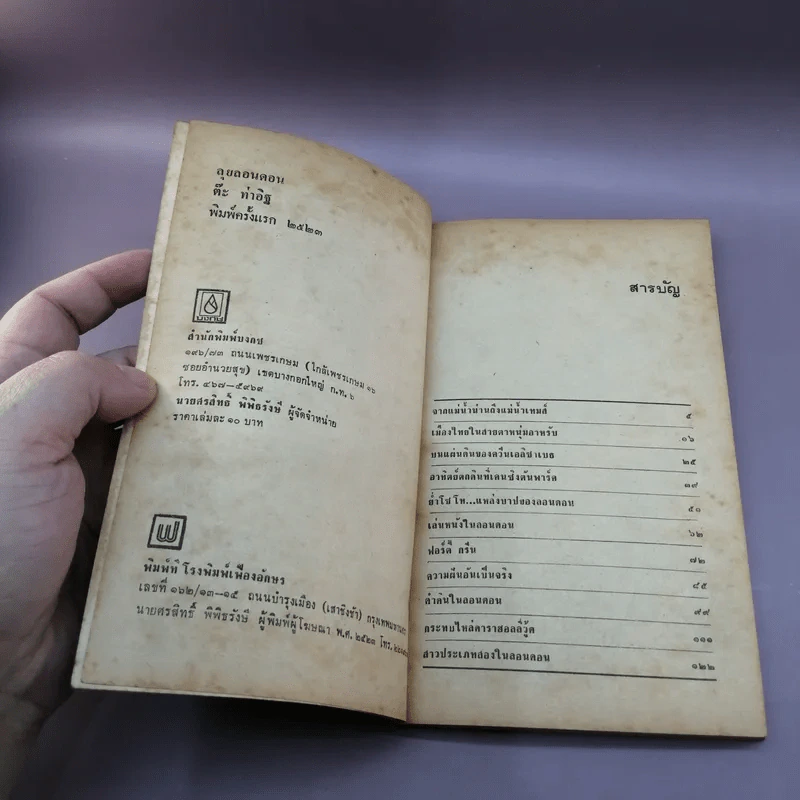 ลุยลอนดอน
ต๊ะ ท่าอิฐ
พิมพ์ครั้งแรก ๒๕๒๓
บงกช
สำนักพิมพ์บงกช
๑๙๖/๗๓ ถนนเพชรเกษม (ใกล้เพชรเกษม ๑๖
ซอยอำนวยสุข) เขตบางกอกใหญ่ ก.ท. ๖
โทร. ๔๖๗—๕๙๖๙
นายศรสิทธิ์ พิพิธรังษี ผู้จัดจำหน่าย
ราคาเล่มละ ๑๐ บาท
พิมพ์ที่ โรงพิมพ์เฟื่องอักษร
เลขที่ ๑๖๒/๑๓—๑๕ ถนนบำรุงเมือง (เสาชิงช้า)
นายศรสิทธิ์ พิพิธรังษี ผู้พิมพ์ผู้โฆษณา พ.ศ. ๒๕๒๓ โทร.
สารบัญ
จากแม่น้ำน่านถึงแม่น้ำเทมส์ ๕
เมืองไทยในสายตาหนุ่มอาหรับ ๑๖
บนแผ่นดินของควีนเอลิซาเบธ ๒๕
อาทิตย์ตกดินที่เคนซิงตันพาร์ค ๓๙
ย่ำโซโห...แหล่งบาปของลอนดอน ๕๑
เล่นหนังในลอนดอน ๖๒
ฟอร์ตี้ กรีน ๗๒
ความฝันอันเป็นจริง ๘๕
ค่ำคืนในลอนดอน ๙๙
กระทบไหล่ดาราฮอลลี่วู้ด ๑๑๑
สาวประเภทสองในลอนดอน ๑๒๒